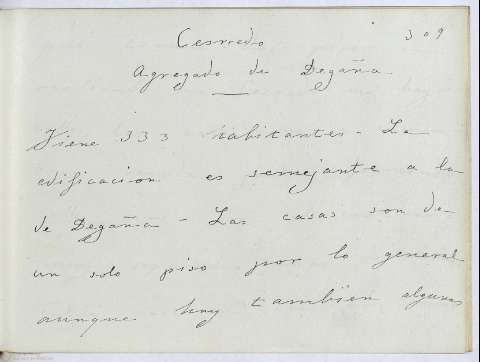 309
Cerredo
Agregado de Degaña
Tiene 333 habitantes - La
edificacion es semejante a la
de Degaña - Las casas son de
un solo piso por lo general
aunque hay tambien algunas